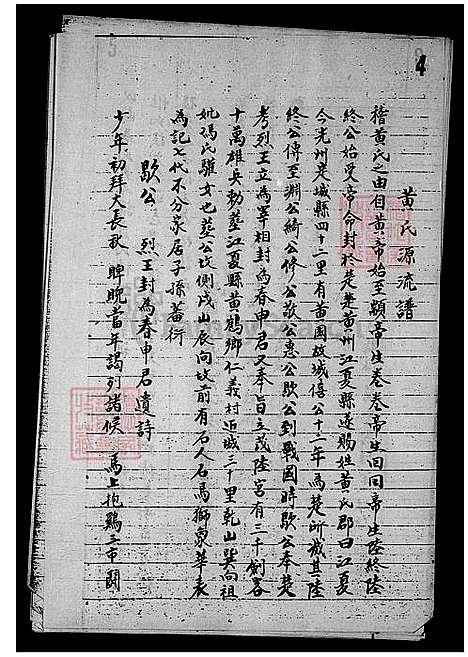 4
黄氏源流譜
稽黄氏之由自黄帝始至顓帝生卷卷帝生回回帝生陸終陸
終公始受帝命封於楚黄州江夏縣遂賜姓黄氏郡曰江夏
今光州是城縣四十二里有黄國故城僖公十二年為楚所滅其陸
終公傳至渊公綺公修公敬公惠公歇公到戰國時歇公奉楚
考烈王立為宰相封為春申君又奉旨立茂陸宮有三千劍客
十萬雄兵勅塟江夏縣黄鶴鄉仁義村近城三十里乾山巽向祖
妣馮氏驪女也塟公坟側戌山辰向坟前有石人石馬獅象華表
為記七代不分家居子孫蕃衍
歇公 烈王封為春申君遺詩
少年初拜大長秋 睥睨當年謁列諸候 馬上抱鷄三市鬪